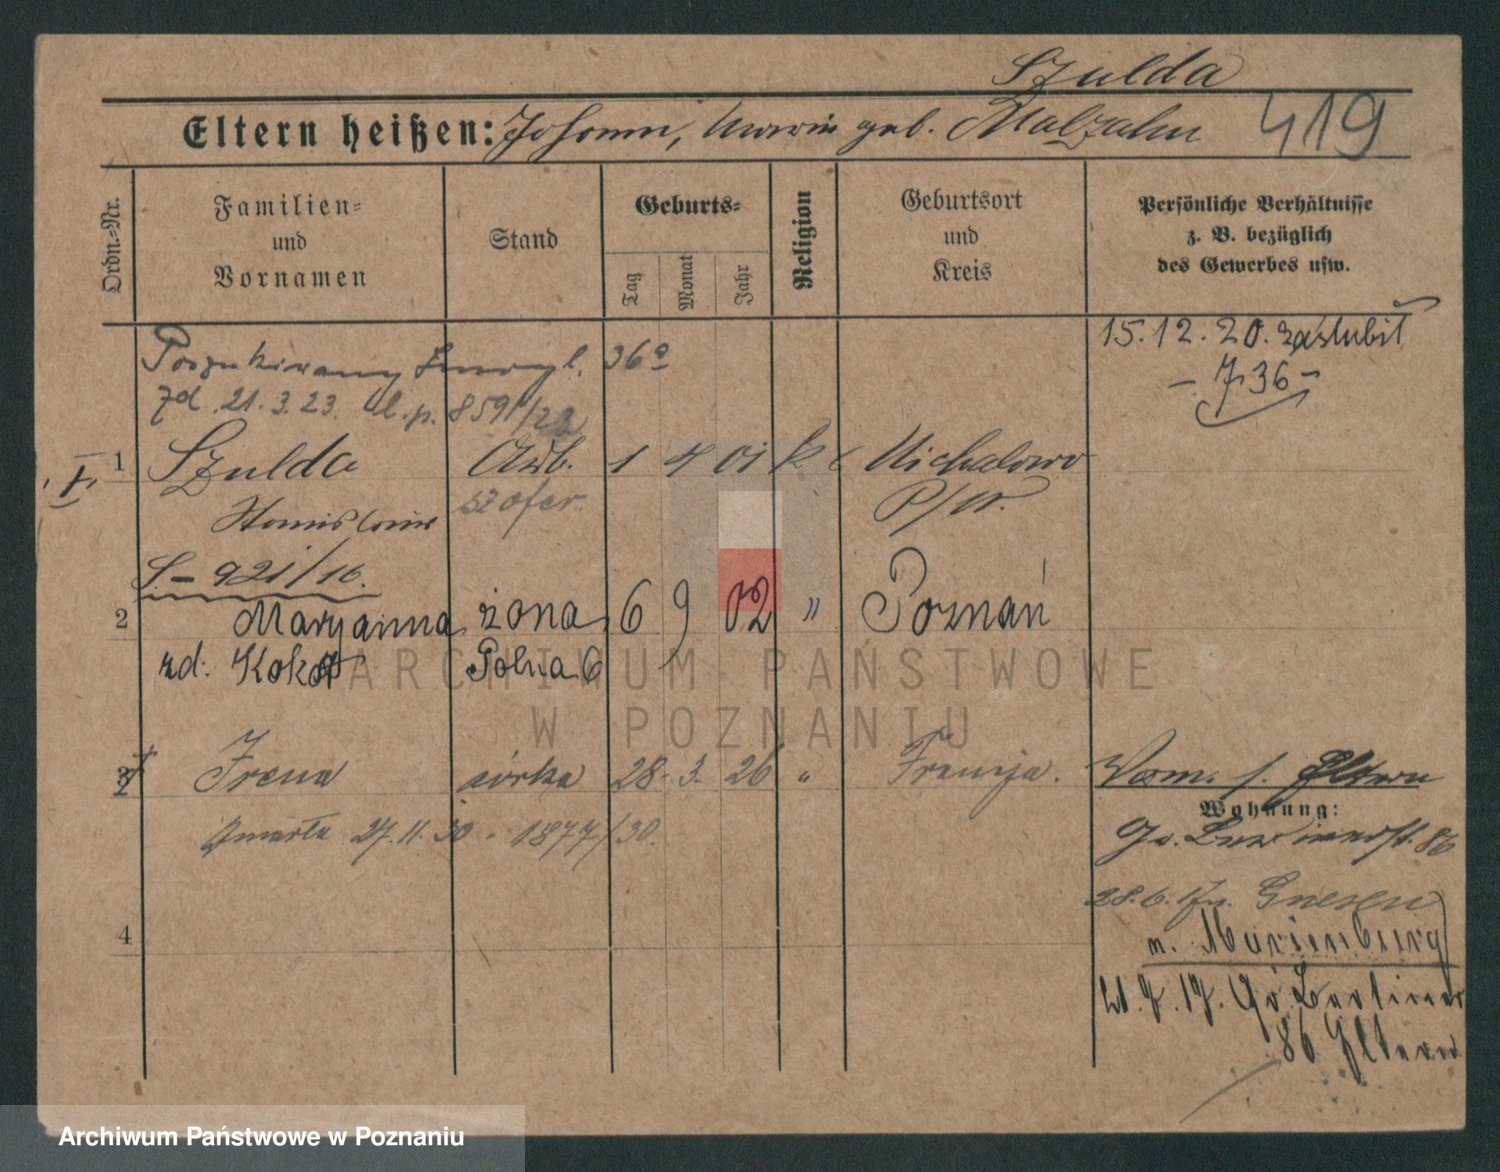 Szulda
Eltern heißen: Johann, Maria geb. Malzahn
419
Ordn.-Nr.
Familien-
und
Vornamen
Stand
Geburts-
Tag
Monat
Jahr
Religion
Geburtsort
und
Kreis
Persönliche Verhältnisse
z. B. bezüglich
des Gewerbes usw.
Poszukiwany 36
zd. 21.3.23. l.p. 859/23
15.12.20. zaślubił
- 736 -
I. 1 Szulda Arb. 1 4 01 k Michalowo
Stanislaus szofer. P/W.
S. - 921/16.
2 Maryanna żona 6 9 02 " Poznań
zd. Kokot Polna 6
3 Irena córka 28. 3. 26 " Francja.
Zmarła 27.11.30. 1877/30.
Vorm. s. Eltern
Wohnung:
86
28.6.17 n. Gnesen
n. Marienburg
4
7.17. Gr. Berliner
86 Eltern
ARCHIWUM PAŃSTWOWE
W POZNANIU
Archiwum Państwowe w Poznaniu